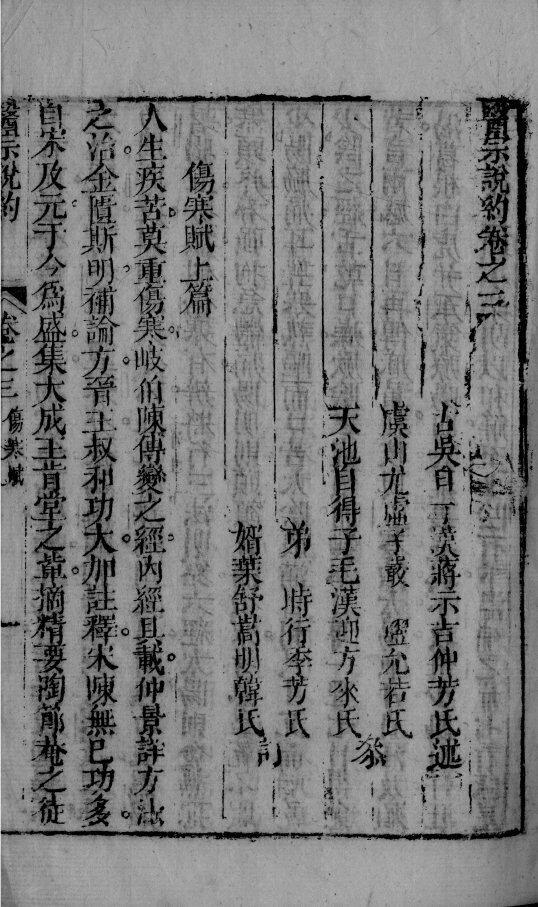 醫宗說約卷之三
古吳自了漢蔣示吉仲芳氏述
虞山尤盧子嚴 盧允若氏
天池自得子毛漢迎方來氏 叅
弟 時行李芳氏
婿葉舒嵩明韓氏 訂
傷寒賦上篇
人生疾苦莫重傷寒岐伯陳傳變之經內經且載仲景詳方法
之治金匱斯明補論方晉王叔和功大加註釋宋陳無已功多
自宋及元于今爲盛集大成王肯堂之章摘精要陶節菴之徒
醫宗說約
卷之三 傷寒賦
一